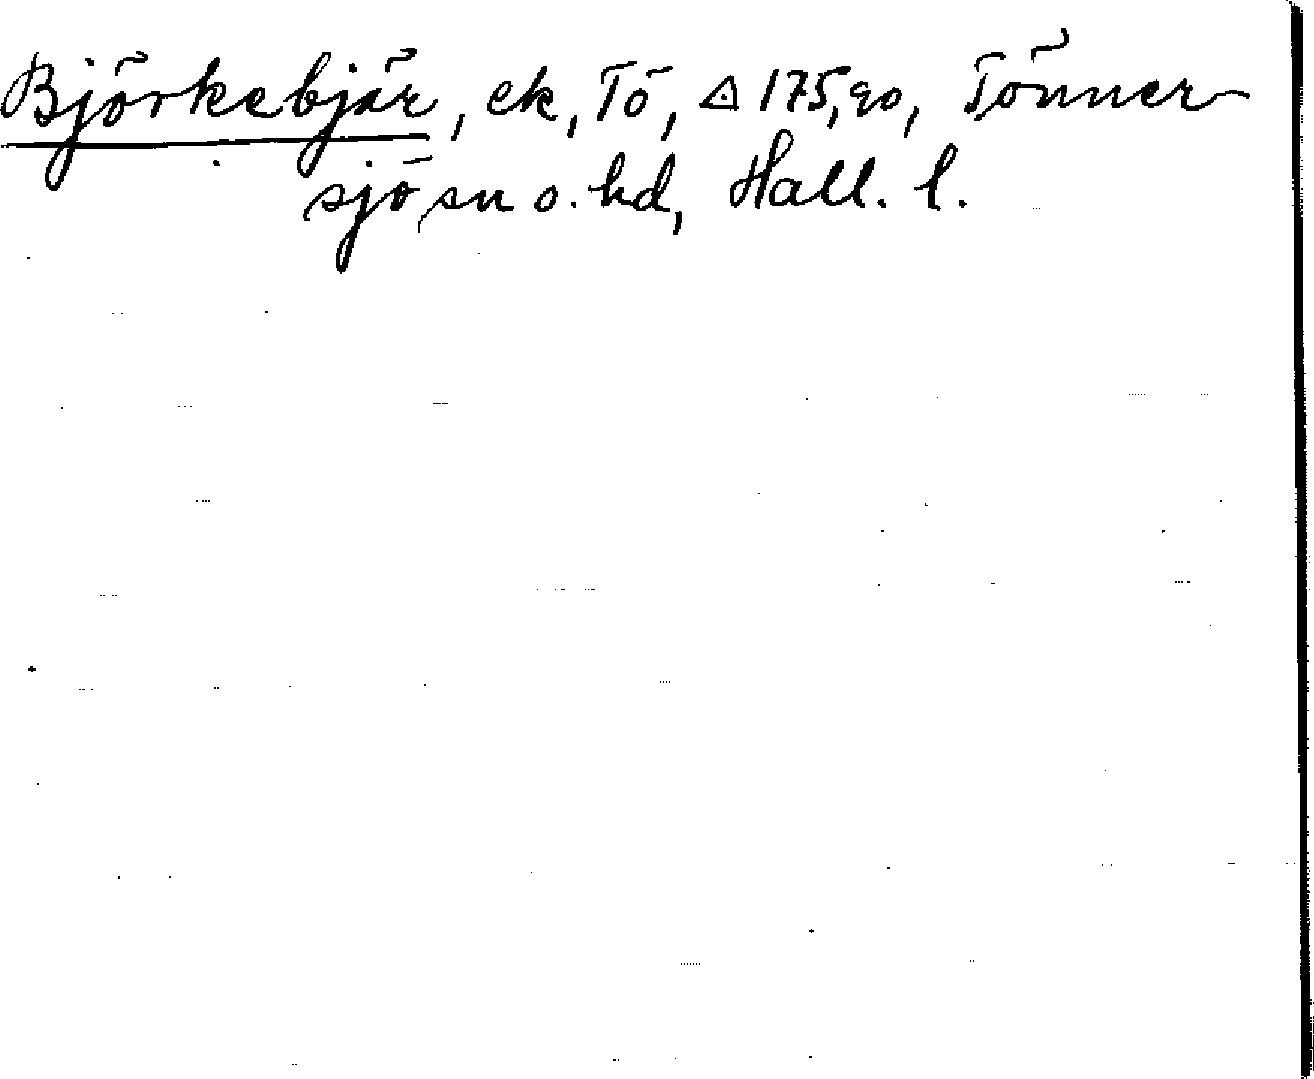 Björkebjär, ek, Tö, △ 175,90, Tönner-
sjö sn o. hd, Hall. l.